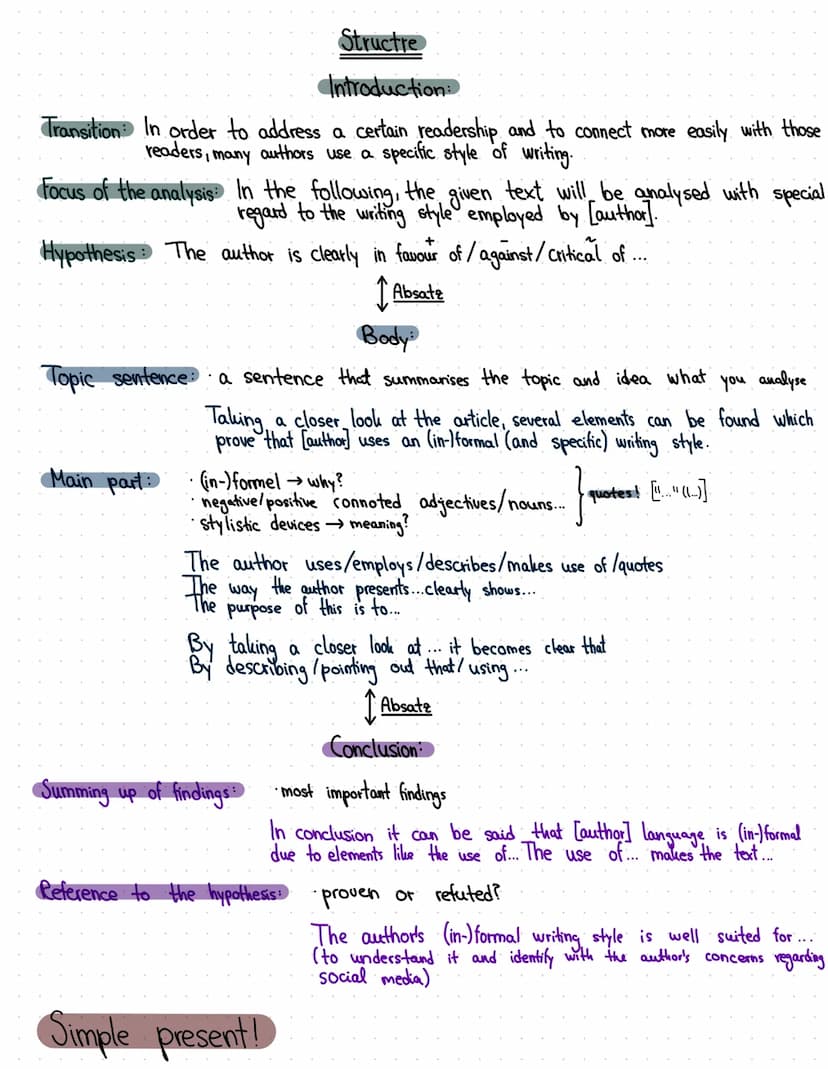 Structre
Introduction:
Transition: In order to address a certain readership and to connect more easily with those
readers, many authors use a specific style of writing.
Focus of the analysis: In the following, the given text will be analysed with special
regard to the writing style employed by [author].
Hypothesis: The author is clearly in favour of / against / critical of ...
+ - ~
↕ Absatz
Body:
Topic sentence: · a sentence that summarises the topic and idea what you analyse
Taking a closer look at the article, several elements can be found which
prove that [author] uses an (in-)formal (and specific) writing style.
Main part: · (in-)formel → why?
· negative/positive connoted adjectives/nouns... } quotes! ["..." (l...)]
· stylistic devices → meaning?
The author uses/employs/describes/makes use of /quotes
The way the author presents...clearly shows...
The purpose of this is to...
By taking a closer look at ... it becomes clear that
By describing/pointing out that/using ...
↕ Absatz
Conclusion:
Summing up of findings: · most important findings
In conclusion it can be said that [author] language is (in-)formal
due to elements like the use of... The use of ... makes the text ...
Reference to the hypothesis: · proven or refuted?
The author's (in-)formal writing style is well suited for ...
(to understand it and identify with the author's concerns regarding
social media)
Simple present!